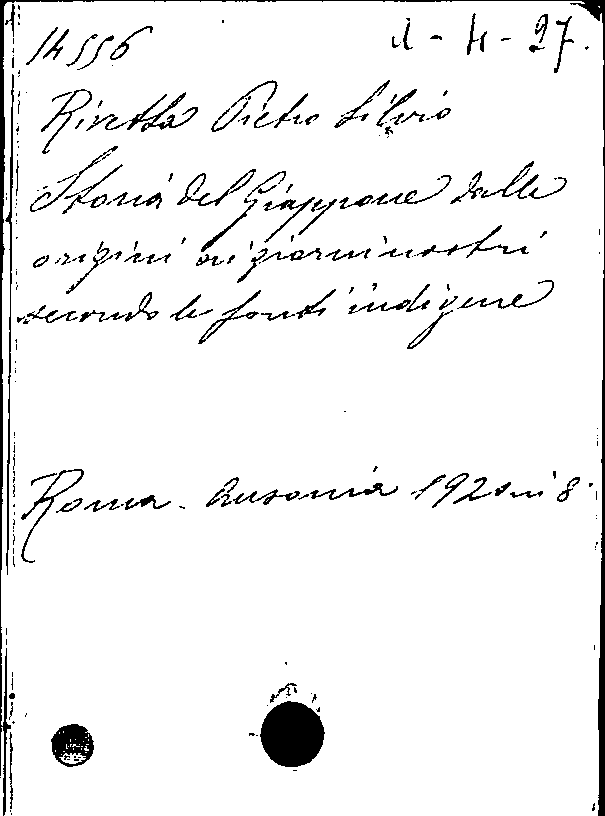 14556
d - H - 27.
Rivetta Pietro Silvio
Storia del Giappone dalle
origini ai giorni nostri
secondo le fonti indigene
Roma - Ausonia 1920 in 8°